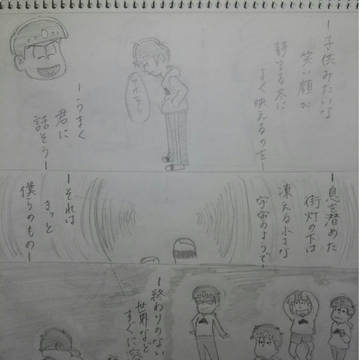 ー子供みたいな
笑い顔が
誇らしいo
よく映えるのさー
ーうまく
君に
話そうー
ー息を潜めた
街灯の下は
凍える小さな
宇宙のようでー
ーそれは
きっと
僕らのものー
ー終わりのない
世界ほど
すぐに